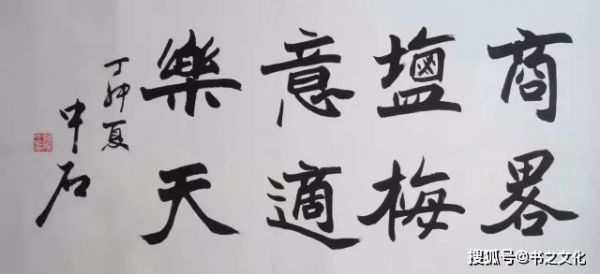 商畧
塩梅
意適
樂天
丁卯夏
中石
搜狐号@书之文化